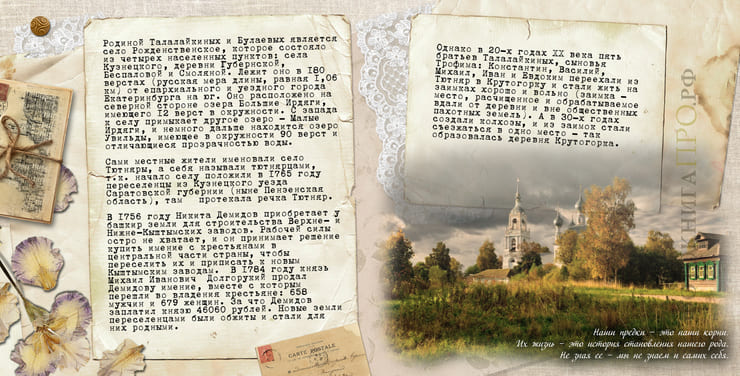 Родиной Талалайкиных и Булаевых является
село Рождественское, которое состояло
из четырех населенных пунктов: села
Кузнецкого, деревни Губернской,
Беспаловой и Смолиной. Лежит оно в 180
верстах (русская мера длины, равная 1,06
км) от епархиального и уездного города
Екатеринбурга на юг. Оно расположено на
северной стороне озера Большие Ирдяги,
имеющего 12 верст в окружности. С запада
к селу примыкает другое озеро - Малые
Ирдяги, и немного дальше находится озеро
Увильды, имеющее в окружности 90 верст и
отличающиеся прозрачностью воды.
Сами местные жители именовали село
Тютняры, а себя называли тютнярцами,
т.к. начало селу положили в 1765 году
переселенцы из Кузнецкого уезда
Саратовской губернии (ныне Пензенская
область), там протекала речка Тютняр.
В 1756 году Никита Демидов приобретает у
башкир земли для строительства Верхне- и
Нижне-Кыштымских заводов. Рабочей силы
остро не хватает, и он принимает решение
купить имение с крестьянами в
центральной части страны, чтобы
переселить их и приписать к новым
Кыштымским заводам. В 1784 году князь
Михаил Иванович Долгорукий продал
Демидову имение, вместе с которым
перешли во владения крестьяне: 658
мужчин и 679 женщин. За что Демидов
заплатил князю 46060 рублей. Новые земли
переселенцами были обжиты и стали для
них родными.
CARTE POSTALE
Однако в 20-х годах XX века пять
братьев Талалайкиных, сыновья
Трофима: Константин, Василий,
Михаил, Иван и Евдоким переехали из
Тютняр в Крутогорку и стали жить на
заимках хорошо и вольно (заимка -
место, расчищенное и обрабатываемое
вдали от деревни и вне общественных
пахотных земель). А в 30-х годах
создали колхозы, и из заимок стали
съезжаться в одно место - так
образовалась деревня Крутогорка.
КНИГАПРО.РФ
Наши предки - это наши корни.
Их жизнь - это история становления нашего рода.
Не зная ее - мы не знаем и самих себя.